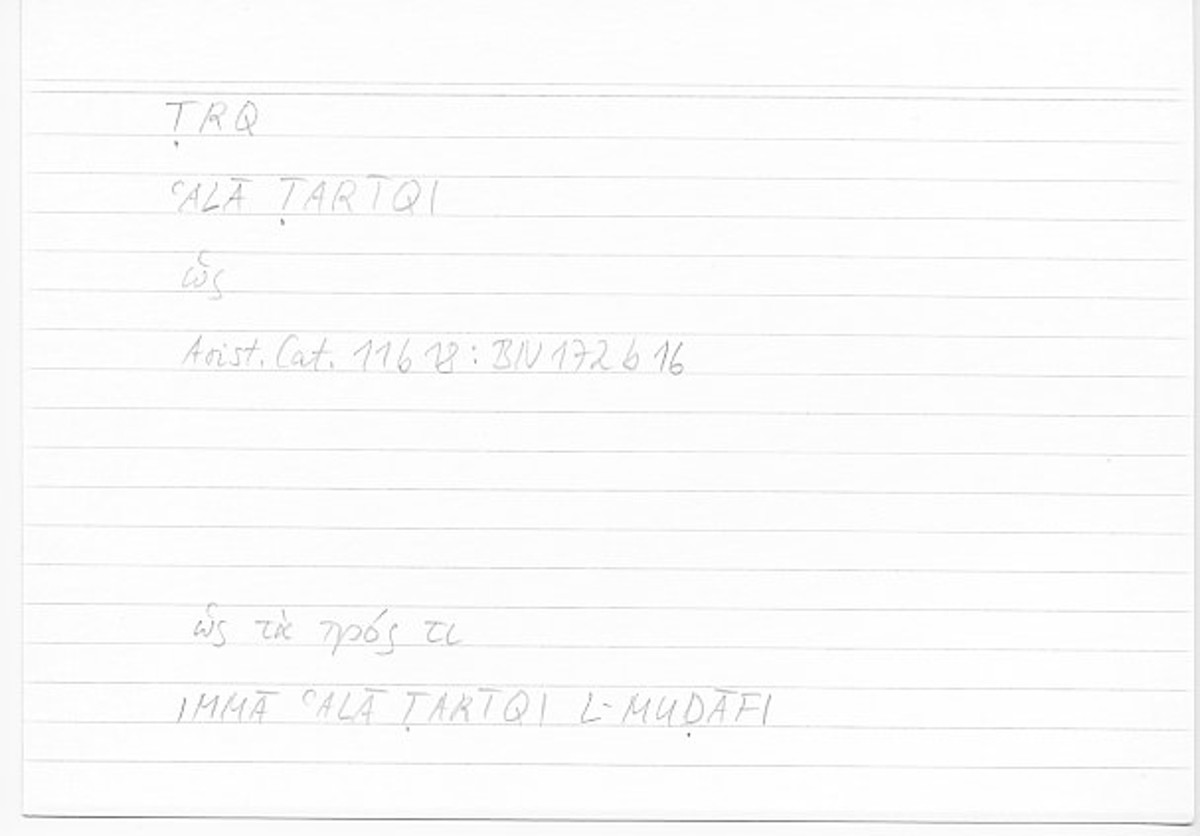 ṬRQ
ʿALĀ ṬARĪQI
ὡς
Arist. Cat. 11b18: BN 172b16
ὡς τὰ πρός τι
IMMĀ ʿALĀ ṬARĪQI L-MUḌĀFI